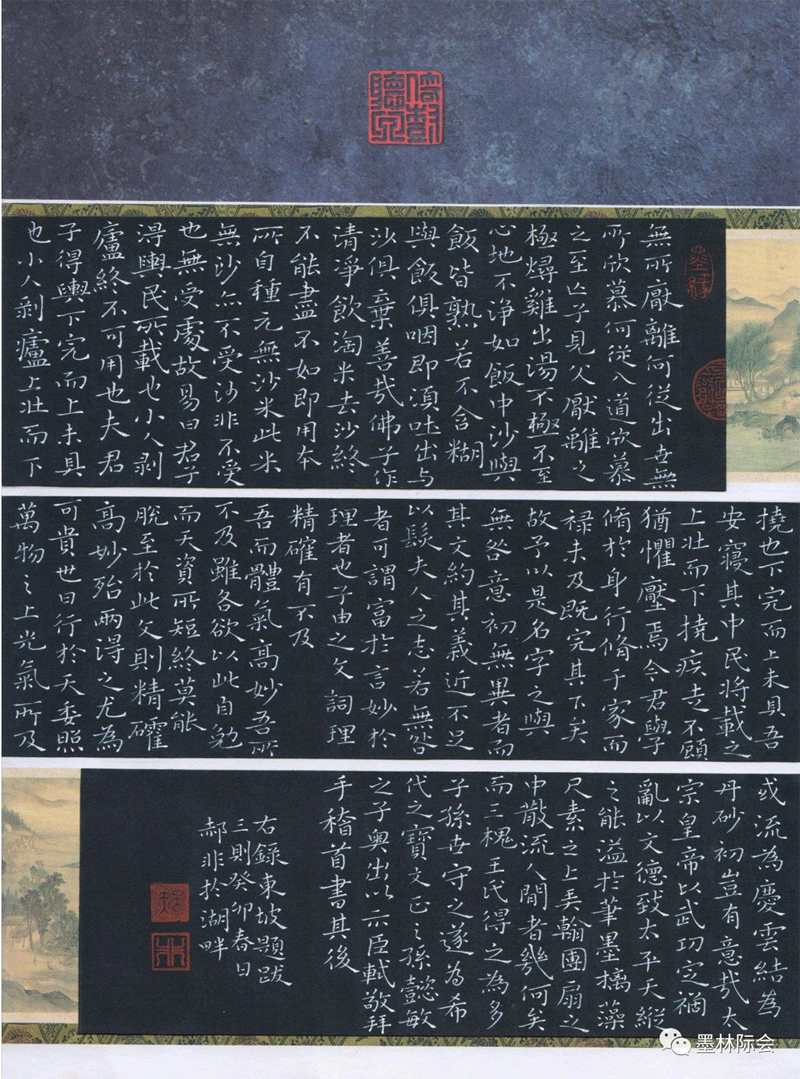 倚樹聽泉
墨缘
無所厭離何從出世無
所欣慕何從入道欣慕
之至亡子見父厭離之
極燖雞出湯不極不至
心地不淨如飯中沙與
飯皆熟若不含糊
與飯俱咽即須吐出与
沙俱棄善哉佛子作
清淨飲淘米去沙終
不能盡不如即用本
所自種元無沙米此米
無沙亦不受沙非不受
也無受處故易曰君子
得輿民所載也小人剥
廬終不可用也夫君
子得輿下完而上未具
也小人剥廬上壯而下
撓也下完而上未具吾
安寢其中民將載之
上壯而下撓疾走不顧
猶懼壓焉今君學
脩於身行脩于家而
禄未及既完其下矣
故予以是名字之與
無咎意初無異者而
其文約其義近不足
以髮夫人之志若無咎
者可謂富於言妙於
理者也子由之文詞理
精確有不及
吾而體氣高妙吾所
不及雖各欲以此自勉
而天資所短終莫能
脫至於此文則精確
高妙殆兩得之尤為
可貴世日行於天委照
萬物之上光氣所及
或流為慶雲結為
丹砂初豈有意哉太
宗皇帝以武功定禍
亂以文德致太平天縱
之能溢於筆墨摛藻
尺素之上弄翰團扇之
中散流人間者幾何矣
而三槐王氏得之為多
子孫世守之遂為希
代之寶文正之孫懿敏
之子奥出以示臣軾敬拜
手稽首書其後
右錄東坡題跋
三則癸卯春日
郝非於湖畔
墨林际会